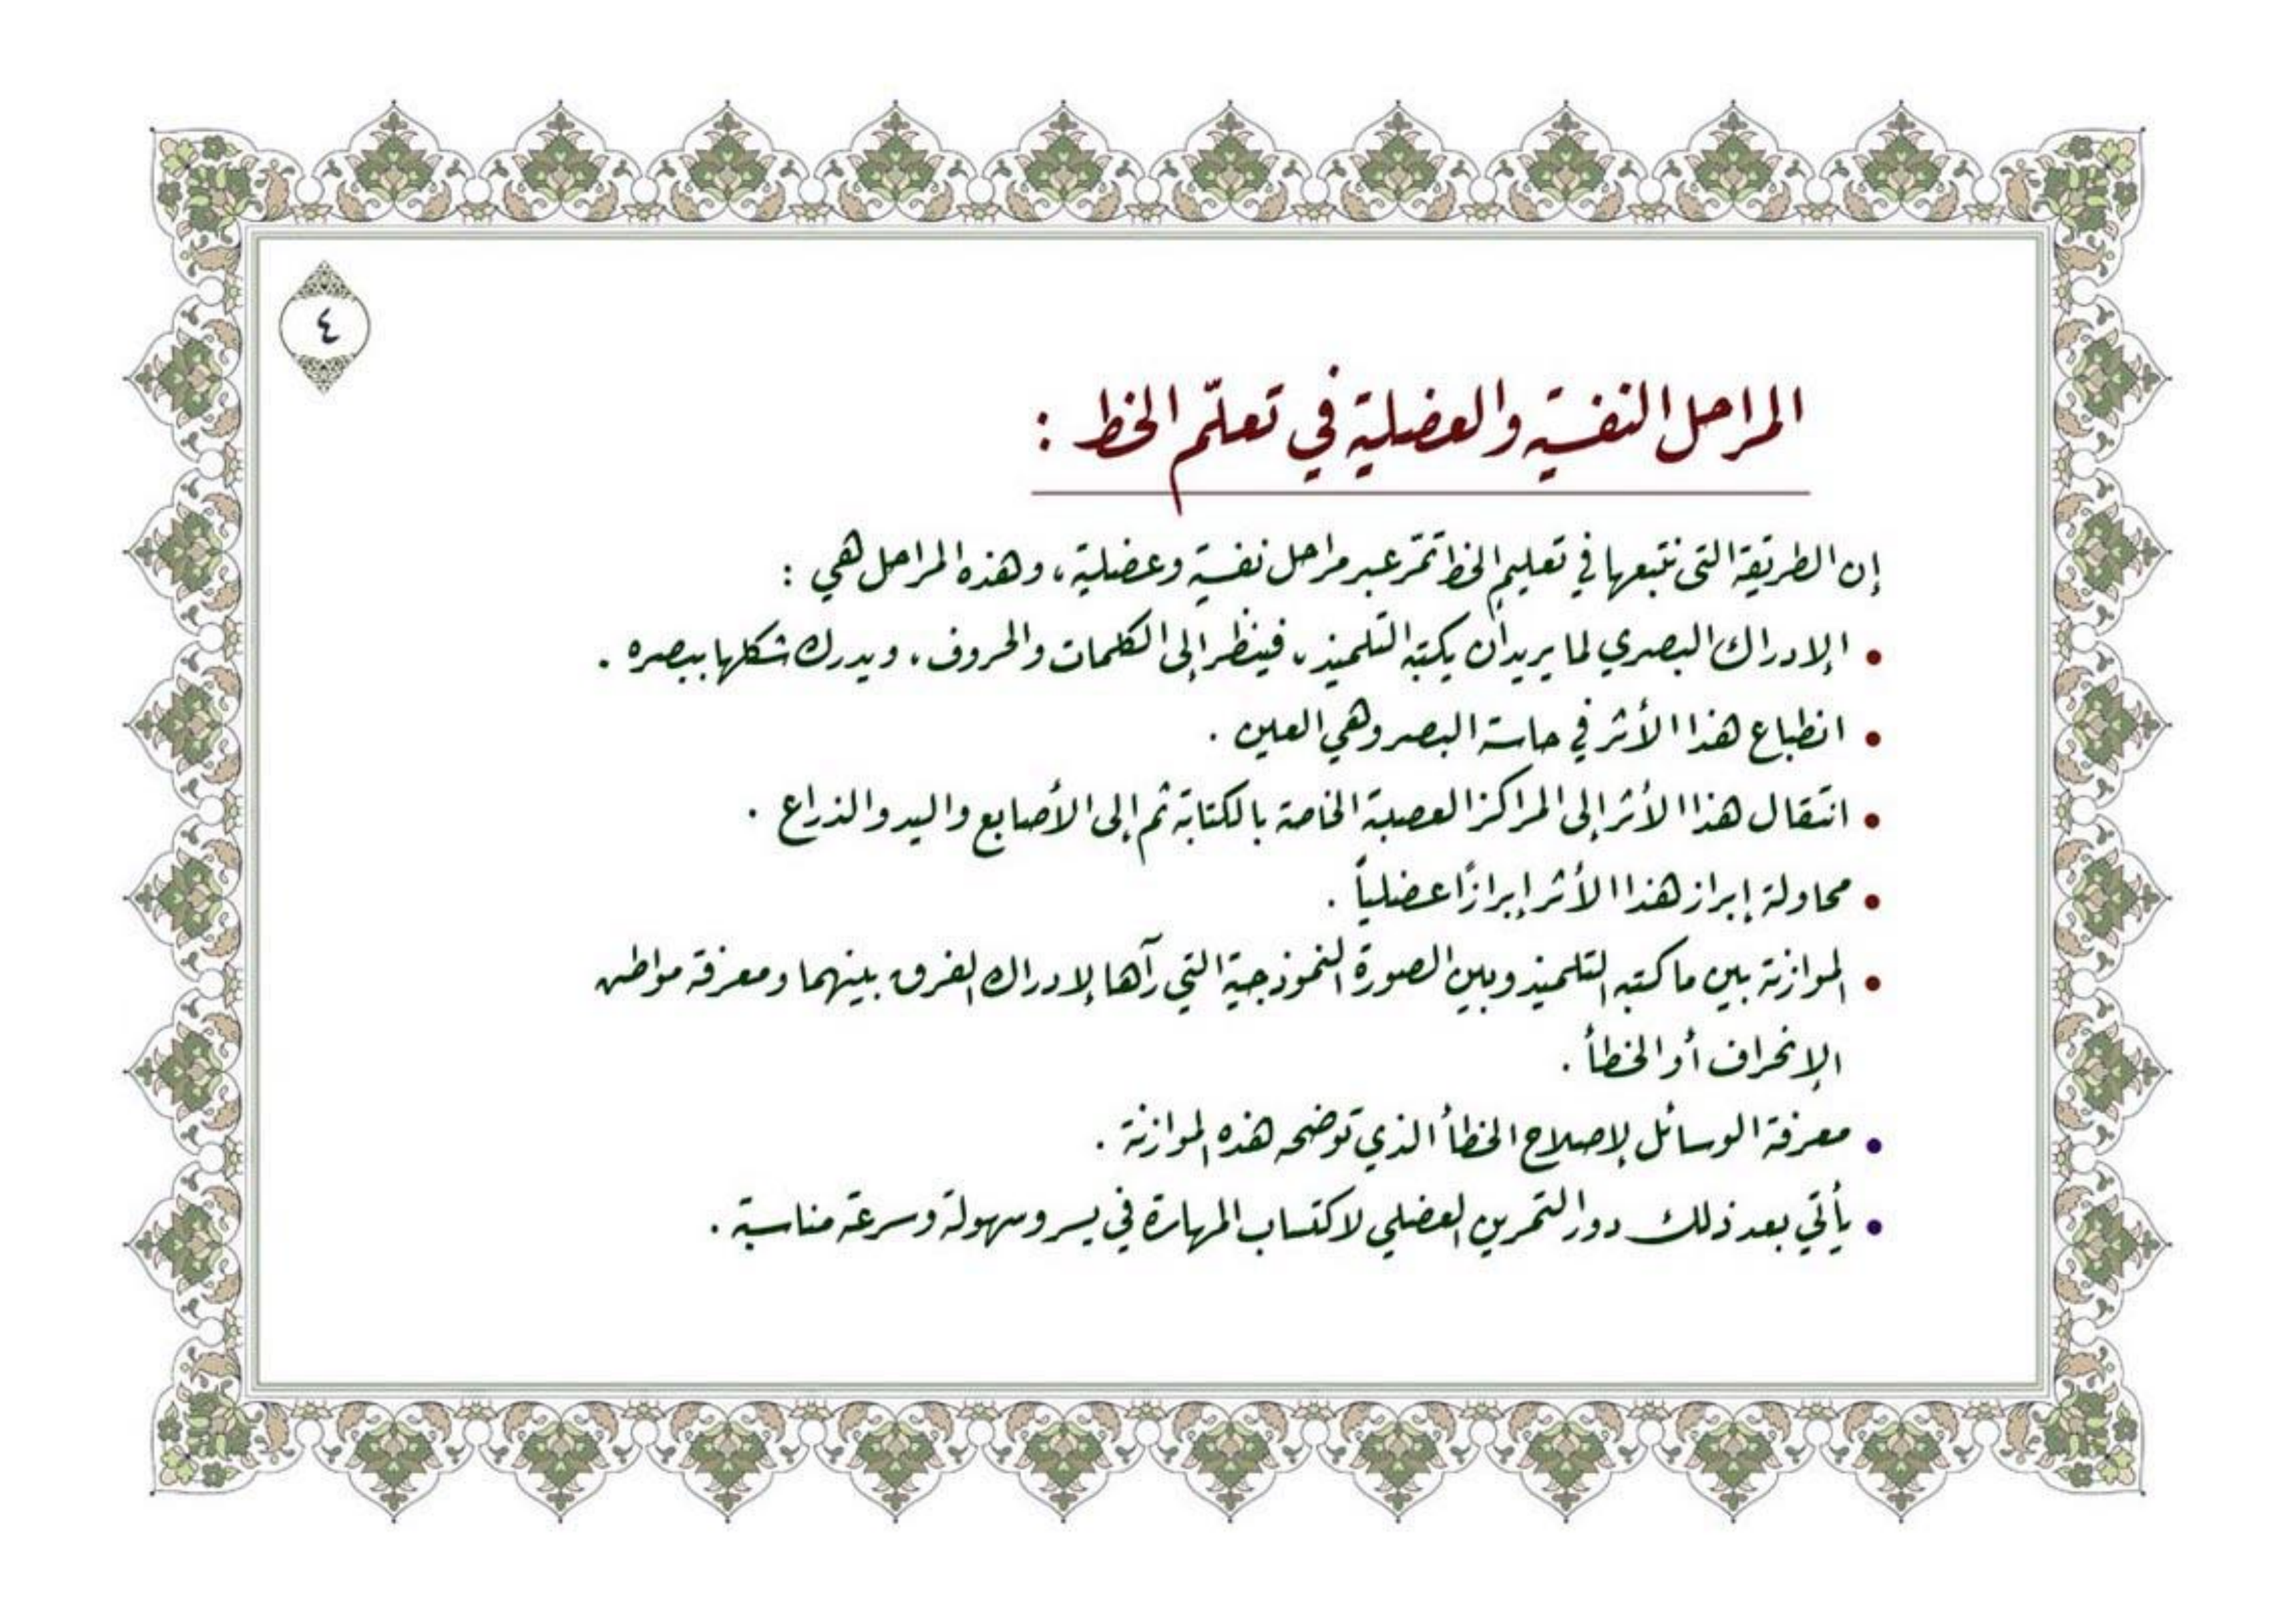 ٤
المراحل النفسية والعضلية في تعلّم الخط :
إن الطريقة التي نتبعها في تعليم الخط تمّر عبر مراحل نفسية وعضلية ، وهذه المراحل هي :
• الإدراك البصري لما يريد أن يكتبه التلميذ ، فينظر إلى الكلمات والحروف ، ويدرك شكلها ببصره .
• انطباع هذا الأثر في حاسة البصر وهي العين .
• انتقال هذا الأثر إلى المراكز العصبية الخاصة بالكتابة ثم إلى الأصابع واليد والذراع .
• محاولة إبراز هذا الأثر إبرازًا عضلياً .
• الموازنة بين ما كتبه التلميذ وبين الصورة النموذجية التي رآها لإدراك الفرق بينهما ومعرفة مواطن
الإنحراف أو الخطأ .
• معرفة الوسائل لإصلاح الخطأ الذي توضحه هذه الموازنة .
• يأتي بعد ذلك دور التمرين العضلي لاكتساب المهارة في يسر وسهولة وسرعة مناسبة .